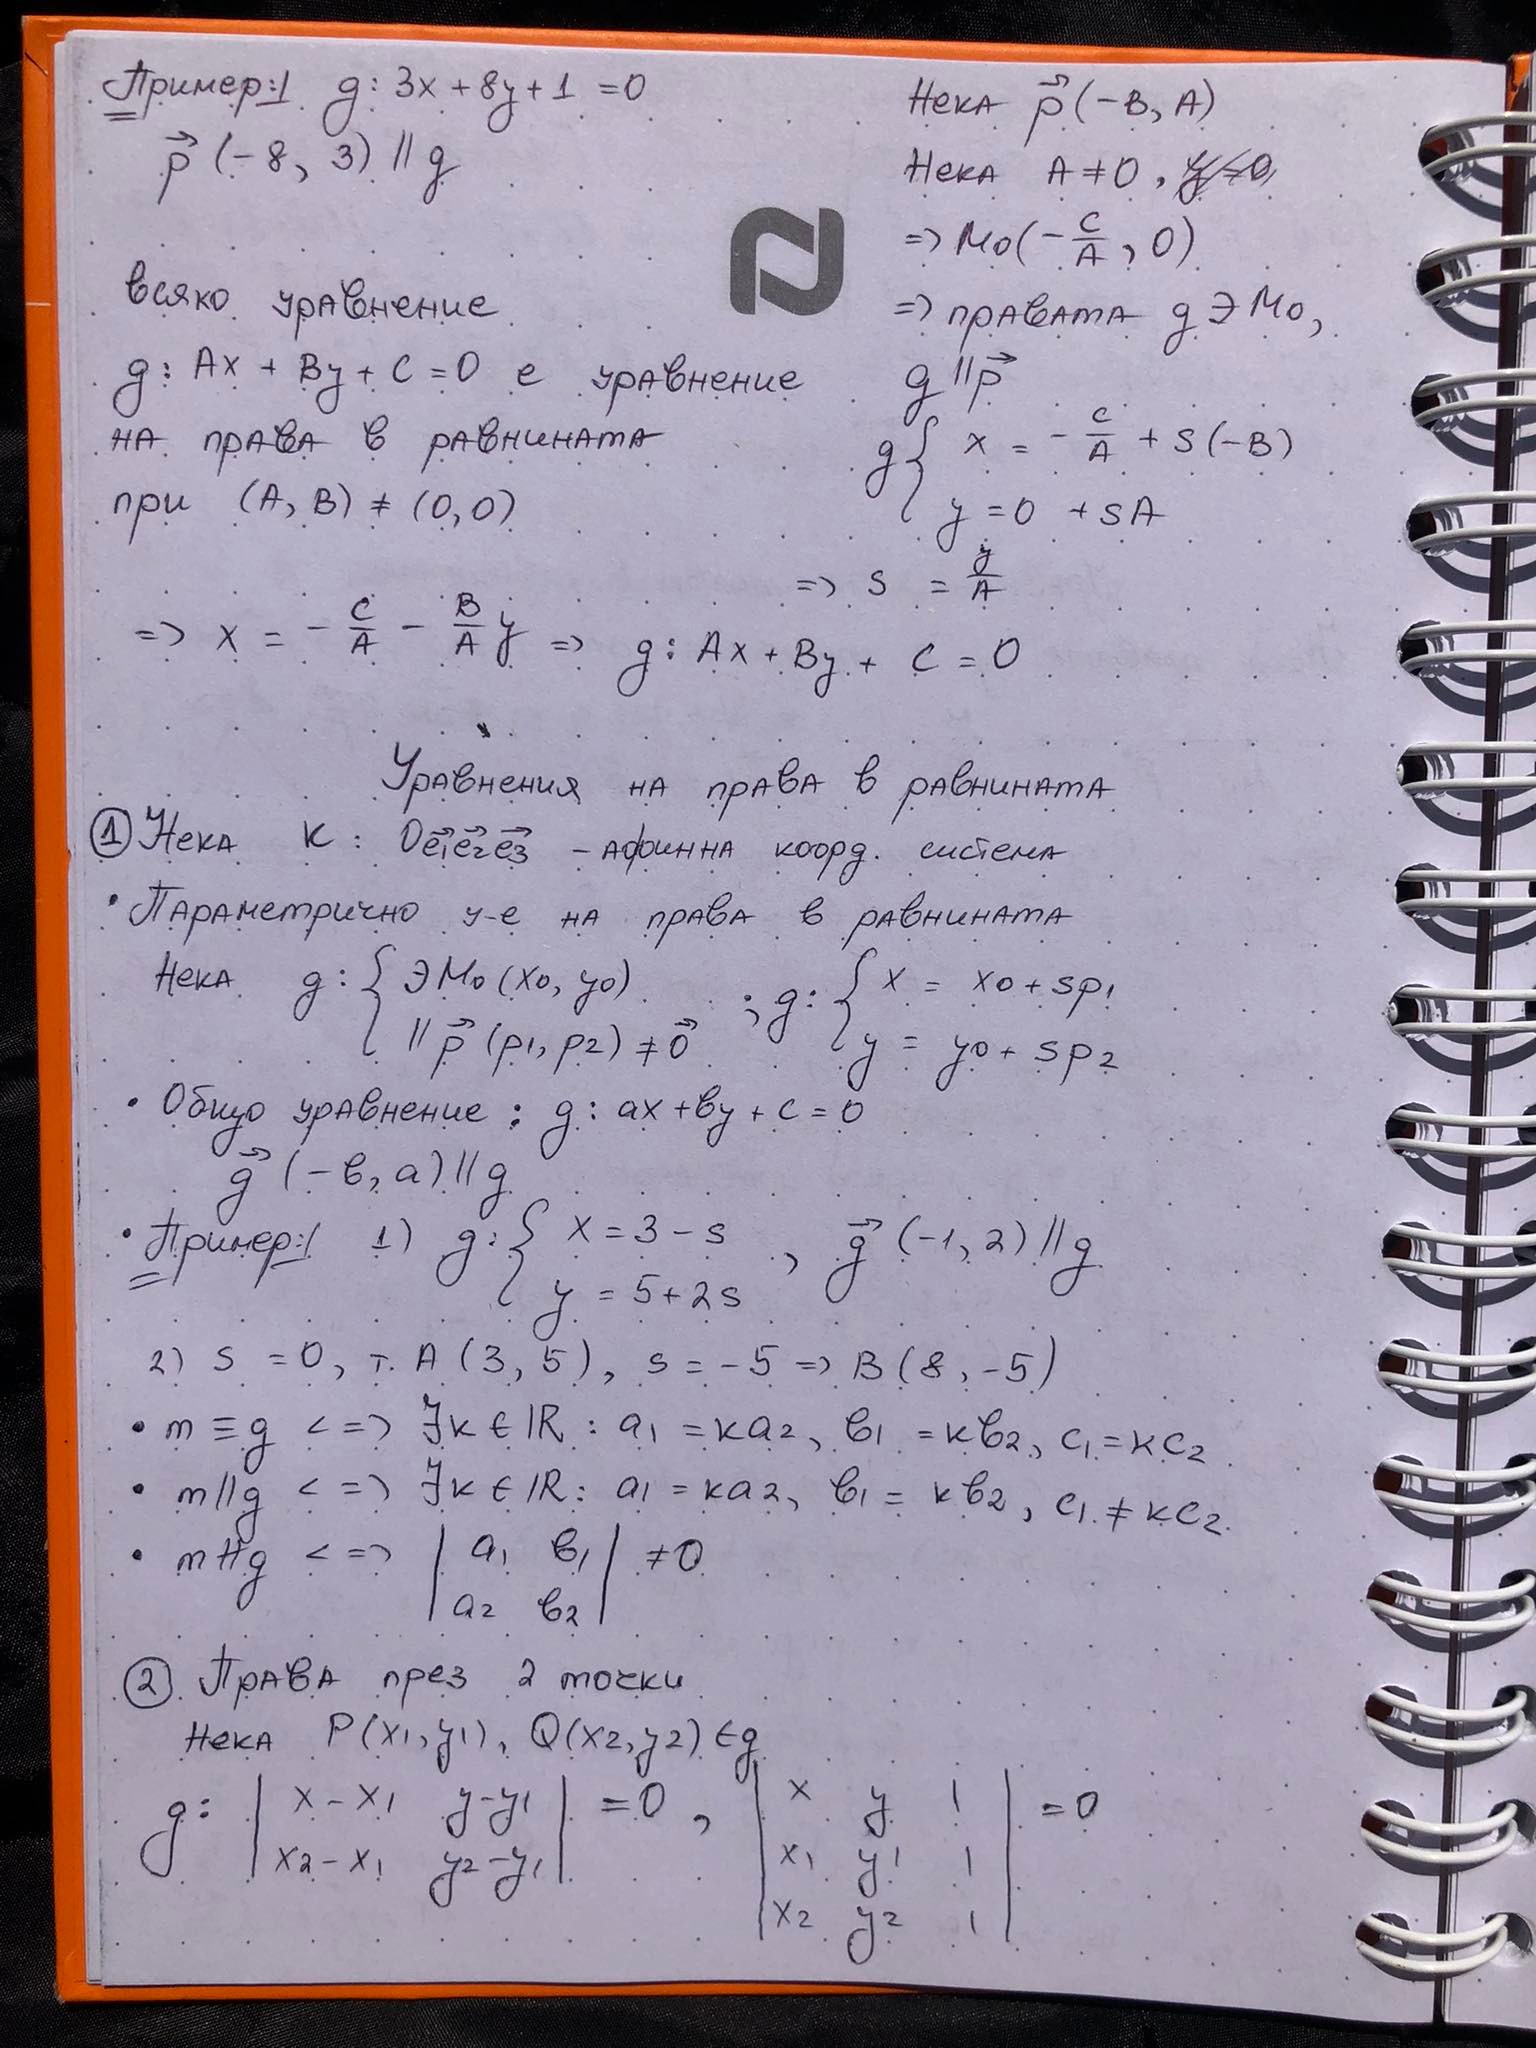 Пример:1 g: 3x + 8y + 1 = 0
p⃗ (-8, 3) || g
всяко уравнение
g: Ax + By + C = 0 е уравнение
на права в равнината
при (A, B) ≠ (0,0)
Нека p⃗ (-B, A)
Нека A ≠ 0,
=> M0(-C/A, 0)
=> правата g ∋ M0,
g || p⃗
g { x = -C/A + s(-B)
y = 0 + sA
=> s = y/A
=> x = -C/A - B/A y => g: Ax + By + C = 0
Уравнения на права в равнината
① Нека K: Oe⃗1e⃗2e⃗3 - афинна коорд. система
• Параметрично у-е на права в равнината
Нека g: { ∋ M0 (x0, y0) ; g: { x = x0 + sp1
|| p⃗ (p1, p2) ≠ 0⃗ y = y0 + sp2
• Общо уравнение: g: ax + by + c = 0
g⃗ (-b, a) || g
• Пример:1 1) g: { x = 3 - s , g⃗ (-1, 2) || g
y = 5 + 2s
2) s = 0, т. A (3, 5), s = -5 => B (8, -5)
• m ≡ g <=> ∃k ∈ ℝ : a1 = ka2, b1 = kb2, c1 = kc2
• m || g <=> ∃k ∈ ℝ : a1 = ka2, b1 = kb2, c1 ≠ kc2.
• m ∦ g <=> | a1 b1 | ≠ 0
| a2 b2 |
② Права през 2 точки
Нека P(x1, y1), Q(x2, y2) ∈ g
g: | x - x1 y - y1 | = 0 , | x y 1 | = 0
| x2 - x1 y2 - y1 | | x1 y1 1 |
| x2 y2 1 |